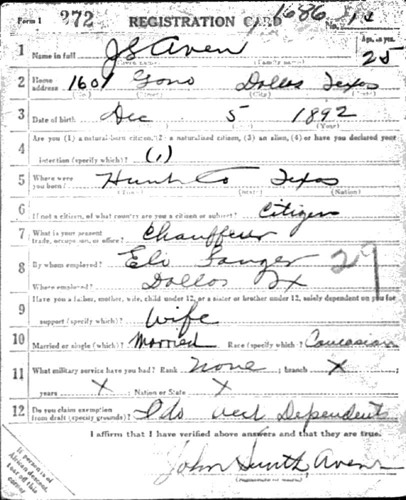 Form 1 272 REGISTRATION CARD 1686 No.
1 Name in full J S Aven Age, in yrs. 25
(Given name) (Family name)
2 Home address 1601 Dallas Texas
(No.) (Street) (City) (State)
3 Date of birth Dec 5 1892
(Month) (Day) (Year)
4 Are you (1) a natural-born citizen, (2) a naturalized citizen, (3) an alien, (4) or have you declared your
intention (specify which)? (1)
5 Where were you born? Hunt Co Texas
(Town) (State) (Nation)
6 If not a citizen, of what country are you a citizen or subject? Citizen
7 What is your present trade, occupation, or office? Chauffeur
8 By whom employed? Eli Sanger 29
Where employed? Dallas Tx
9 Have you a father, mother, wife, child under 12, or a sister or brother under 12, solely dependent on you for
support (specify which)? Wife
10 Married or single (which)? Married Race (specify which)? Caucasian
11 What military service have you had? Rank None ; branch X
years X ; Nation or State X
12 Do you claim exemption from draft (specify grounds)? I do Dependents
I affirm that I have verified above answers and that they are true.
John Smith Aven
If person is of
African descent,
tear off this
corner